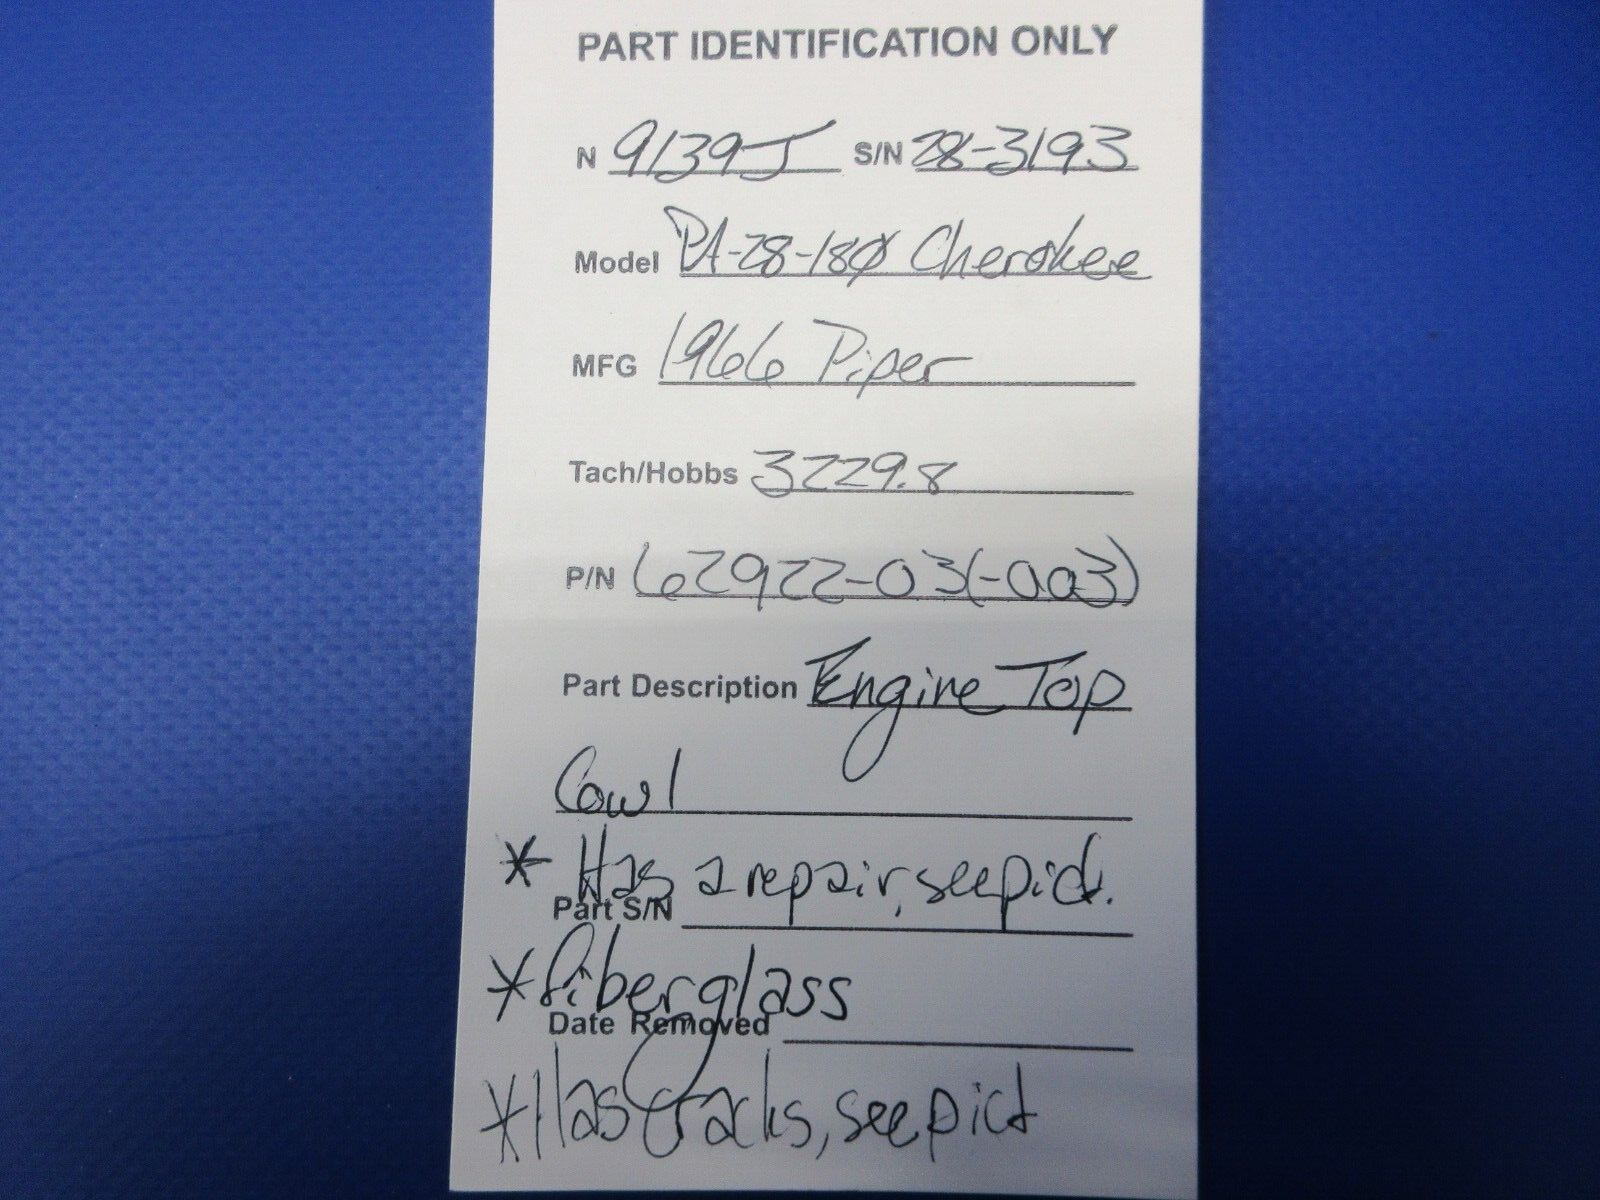 PART IDENTIFICATION ONLY
N 9139J S/N 28-3193
Model PA-28-180 Cherokee
MFG 1966 Piper
Tach/Hobbs 3229.8
P/N 62922-03(-003)
Part Description Engine Top
Cowl
* Has a repair, see pict.
Part S/N
* fiberglass
Date Removed
* Has cracks, see pict